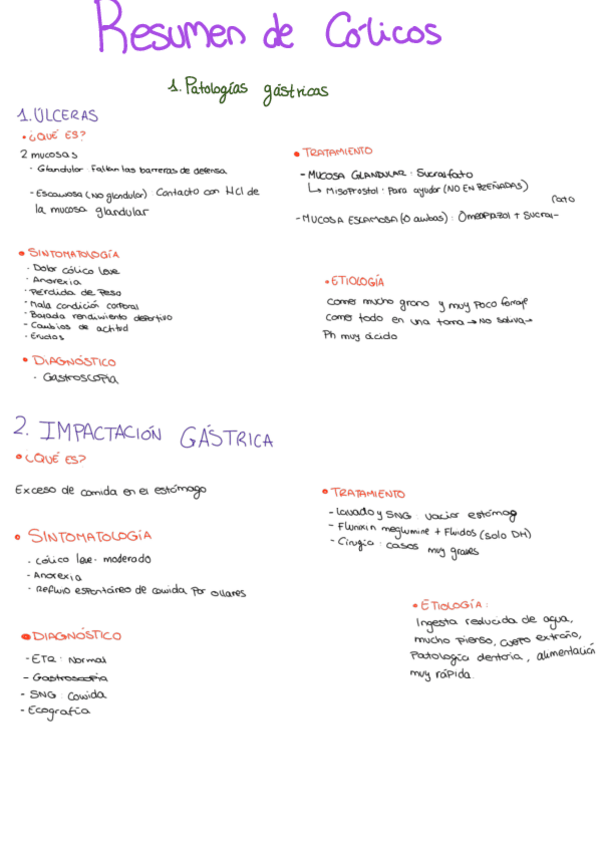 Resumen de Cólicos
1. Patologías gástricas
1. ÚLCERAS
• ¿QUÉ ES?
2 mucosas
- Glandular: Fallan las barreras de defensa
- Escamosa (No glandular) Contacto con HCl de
la mucosa glandular
• SINTOMATOLOGÍA
- Dolor cólico leve
- Anorexia
- Pérdida de peso
- Mala condición corporal
- Bajada rendimiento deportivo
- Cambios de actitud
- Eructos
• DIAGNÓSTICO
- Gastroscopia
• TRATAMIENTO
- MUCOSA GLANDULAR: Sucralfato
↳ Misoprostol: Para ayudar (NO EN PREÑADAS)
- MUCOSA ESCAMOSA (O ambas): Omeprazol + Sucral-
fato
• ETIOLOGÍA
Comer mucho grano y muy poco forraje
Comer todo en una toma → No saliva →
Ph muy ácido
2. IMPACTACIÓN GÁSTRICA
• ¿QUÉ ES?
Exceso de comida en el estómago
• SINTOMATOLOGÍA
- Cólico leve - moderado
- Anorexia
- Reflujo espontáneo de comida por ollares
• DIAGNÓSTICO
- ETR: Normal
- Gastroscopia
- SNG: Comida
- Ecografía
• TRATAMIENTO
- Lavado y SNG: vaciar estómag
- Flunixin meglumine + Fluidos (solo DH)
- Cirugía: casos muy graves
• ETIOLOGÍA:
Ingesta reducida de agua,
mucho pienso, cuerpo extraño,
Patología dentaria, alimentación
muy rápida.